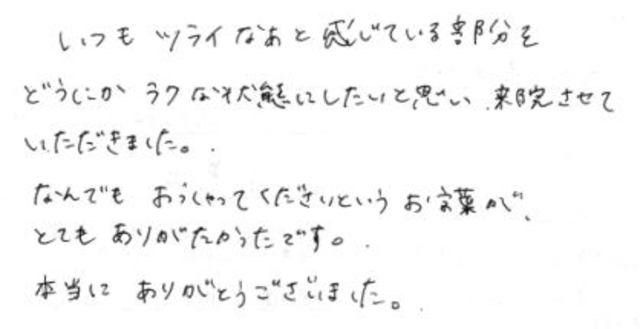 いつも ツライなあと感じている部分を
どうにか ラクな状態にしたいと思い、来院させて
いただきました。
なんでも おっしゃってくださいという お言葉が、
とても ありがたかったです。
本当に ありがとうございました。